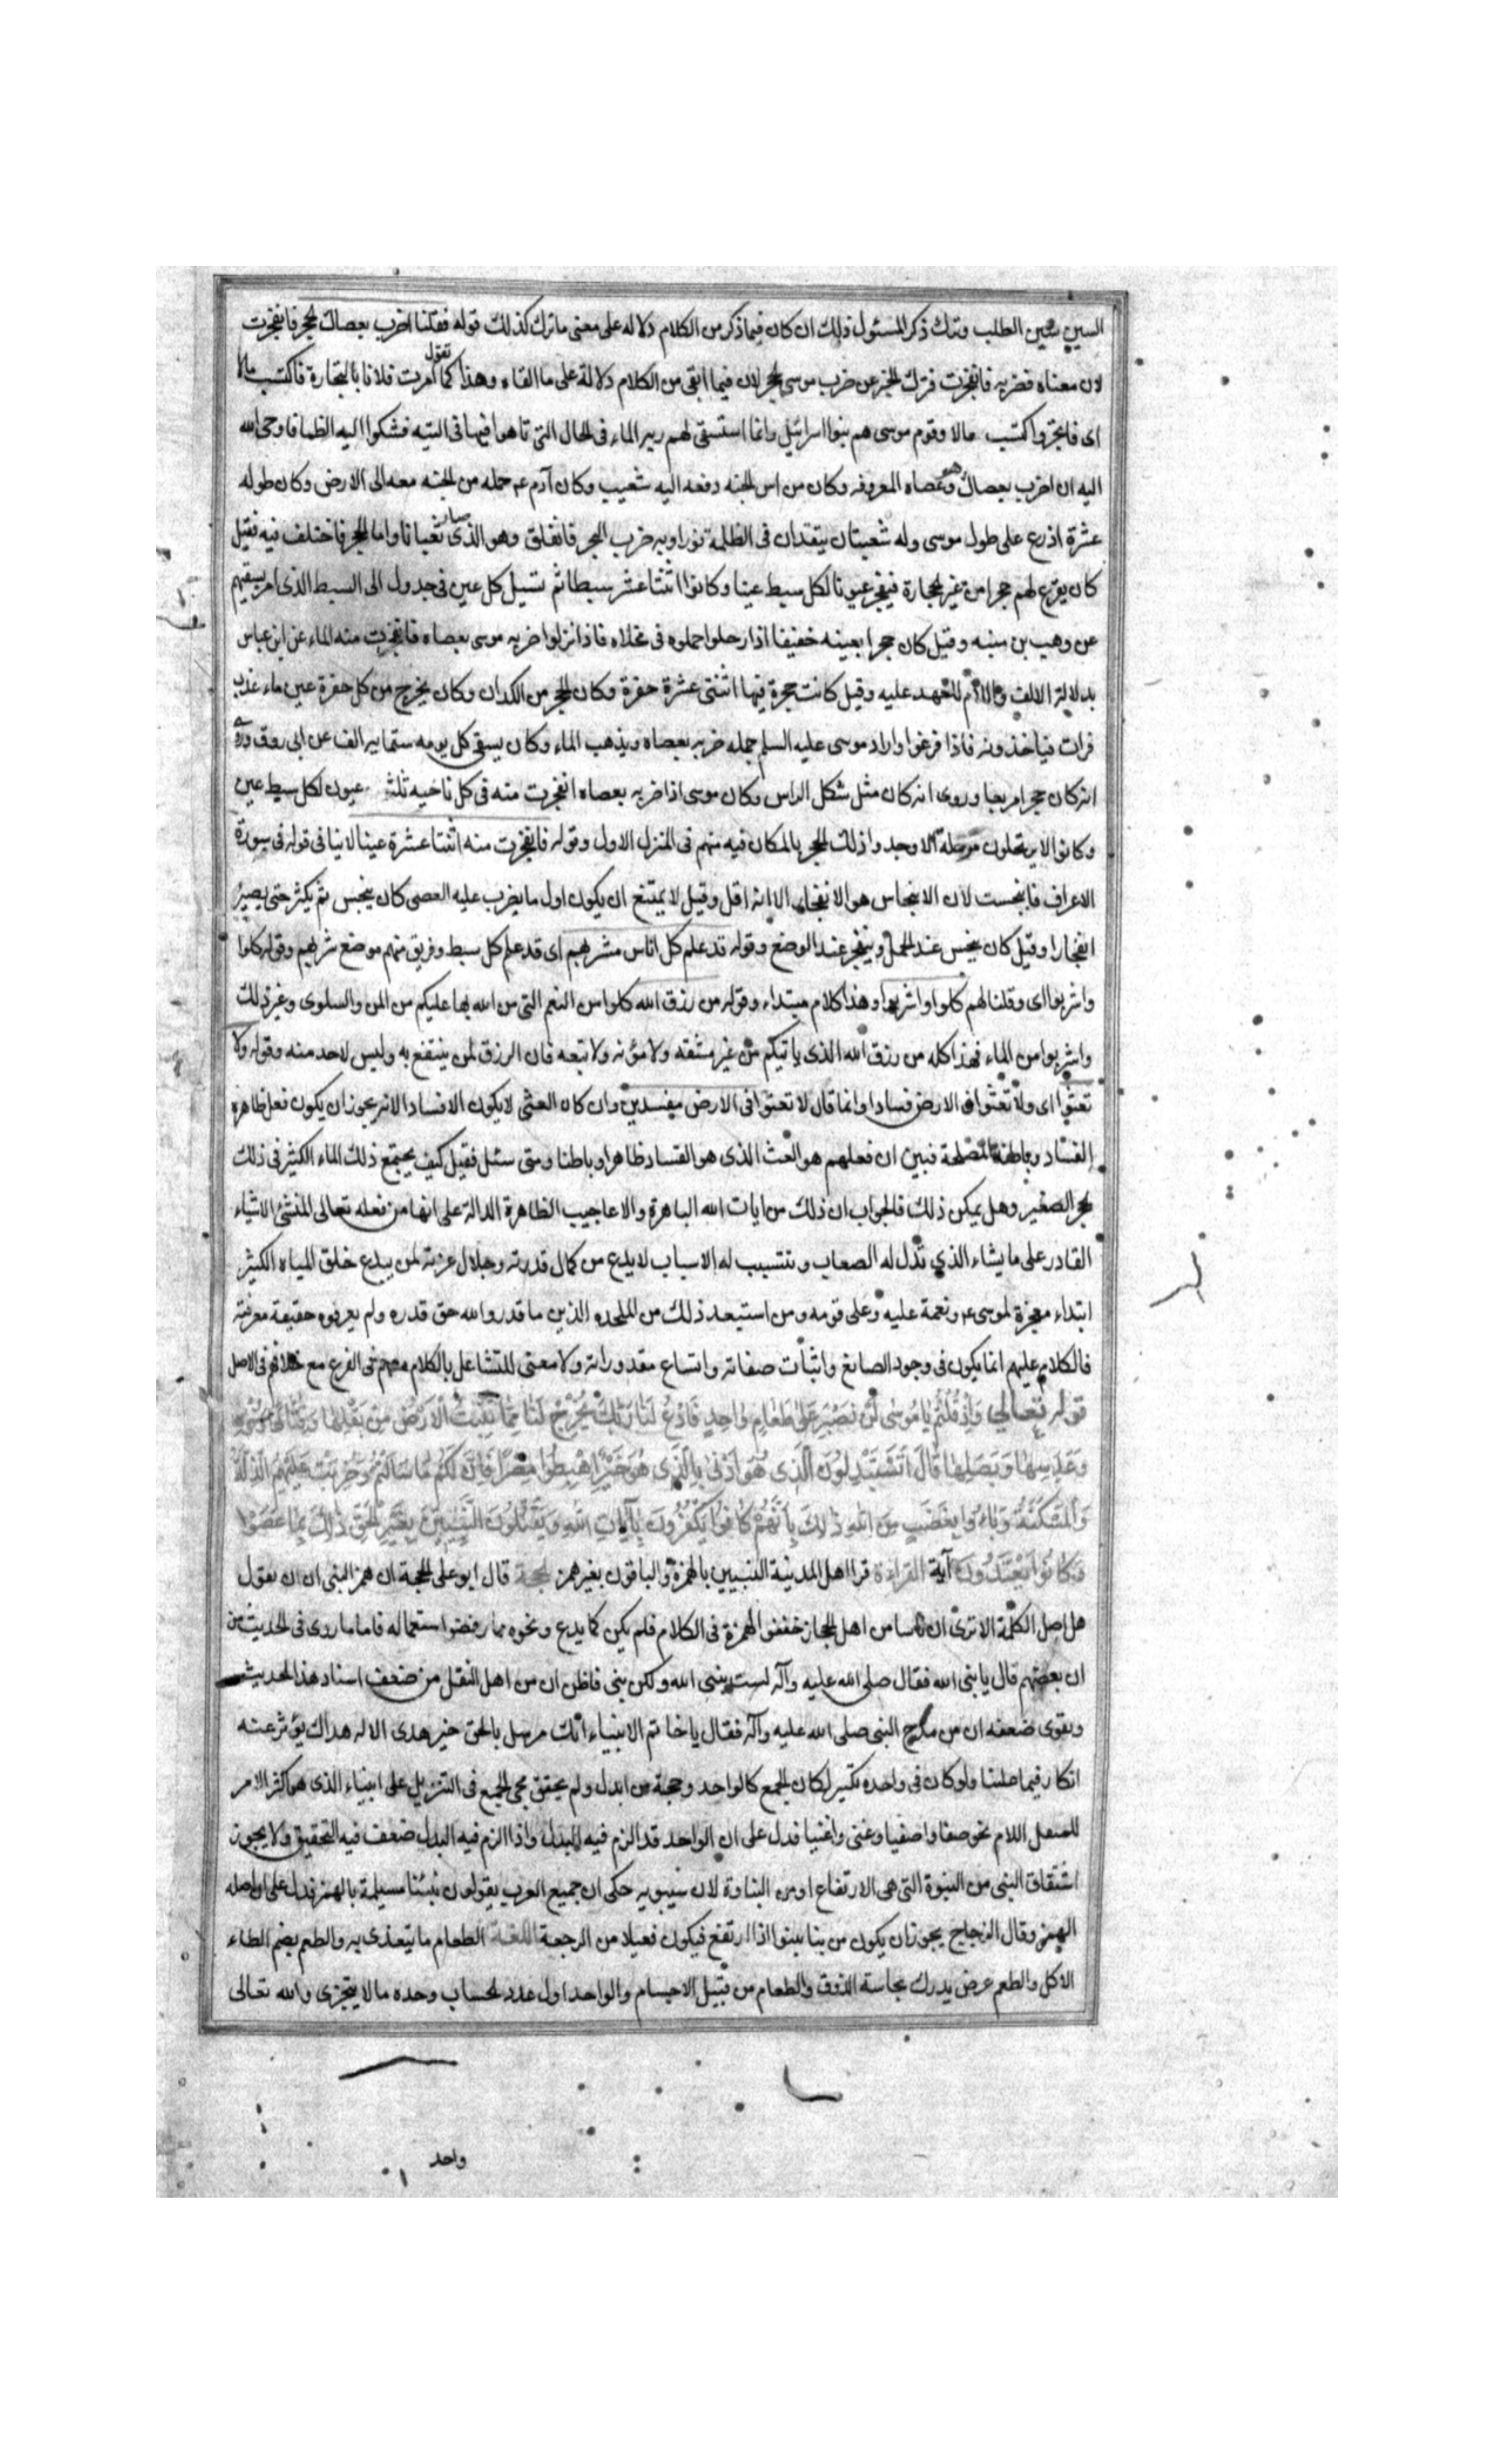 السين سين الطلب وترك ذكر المسئول ذلك ان كان فيما ذكر من الكلام دلاله على معنى ما ترك كذلك قوله فقلنا اضرب بعصاك الحجر فانفجرت
لان معناه فضربه فانفجرت فترك الخبر عن ضرب موسى الحجر لان فيما ابقى من الكلام دلالة على ما القاه وهذا كما تقول امرت فلانا بالتجارة فاكتسب مالا
اى فاتجر واكتسب مالا وقوم موسى هم بنوا اسرائيل وانما استسقى لهم ربه الماء فى الحال التى تاهوا فيها فى التيه فشكوا اليه الظما فاوحى الله
اليه ان اضرب بعصاك وهو عصاه المعروفه وكان من اس الجنه دفعه اليه شعيب وكان آدم عم حمله من الجنه معه الى الارض وكان طوله
عشرة اذرع على طول موسى وله شعبتان يتقدان فى الظلمة نورا وبه ضرب البحر فانفلق وهو الذى صار ثعبانا واما الحجر فاختلف فيه فقيل
كان يقرع لهم حجرا من عرض الحجارة فينفجر عيونا لكل سبط عينا وكانوا اثنتا عشر سبطا ثم تسيل كل عين فى جدول الى السبط الذى امر بسقيهم
عن وهب بن منبه وقيل كان حجرا بعينه خفيفا اذا رحلوا حملوه فى مخلاه فاذا نزلوا ضربه موسى بعصاه فانفجرت منه الماء عن ابن عباس
بدلالة الالف واللام للعهد عليه وقيل كانت حجرة فيها اثنتى عشرة حفرة وكان الحجر من الكدان وكان يخرج من كل حفرة عين ماء عذب
فرات فياخذونه فاذا فرغوا واراد موسى عليه السلم حمله ضربه بعصاه ويذهب الماء وكان يسقى كل يوم ستمايه الف عن ابى روق وروى
انه كان حجرا مربعا وروى انه كان مثل شكل الراس وكان موسى اذا ضربه بعصاه انفجرت منه فى كل ناحيه ثلث عيون لكل سبط عين
وكانوا لا يرتحلون مرحلة الا وجدوا ذلك الحجر بالمكان فيه منهم فى المنزل الاول وقوله فانفجرت منه اثنتا عشرة عينا لا ينافى قوله فى سورة
الاعراف فانبجست لان الانبجاس هو الانفجار الا انه اقل وقيل لا يمتنع ان يكون اول ما يضرب عليه العصى كان ينبجس ثم يكثر حتى يصير
انفجارا وقيل كان ينبجس عند الحمل وينفجر عند الوضع وقوله قد علم كل اناس مشربهم اى قد علم كل سبط وفريق منهم موضع شربهم وقوله كلوا
واشربوا اى وقلنا لهم كلوا واشربوا وهذا كلام مبتداء وقوله من رزق الله كلوا من النعم التى من الله بها عليكم من المن والسلوى وغير ذلك
واشربوا من الماء فهذا كله من رزق الله الذى ياتيكم من غير مشقه ولا مؤنه ولا تبعه فان الرزق لمن ينتفع به وليس لاحد منه وقوله ولا
تعثوا اى ولا تعثوا فى الارض فسادا وانما قال لا تعثوا فى الارض مفسدين وان كان العثى لا يكون الا فسادا لانه يجوز ان يكون فعل ظاهره
الفساد وباطنه المصلحة فبين ان فعلهم هو العث الذى هو الفساد ظاهرا وباطنا ومتى سئل فقيل كيف يجتمع ذلك الماء الكثير فى ذلك
الحجر الصغير وهل يمكن ذلك فالجواب ان ذلك من ايات الله الباهرة والاعاجيب الظاهرة الدالة على انها من فعله تعالى المنشئ الاشياء
القادر على ما يشاء الذى تذل له الصعاب وتتسبب له الاسباب لا بدع من كمال قدرته وجلال عزته لمن يبدع خلق المياه الكثير
ابتداء معجزة لموسى عم ونعمة عليه وعلى قومه ومن استبعد ذلك من الملحده الذين ما قدروا الله حق قدره ولم يعرفوه حقيقة معرفته
فالكلام عليهم انما يكون فى وجود الصانع واثبات صفاته واتساع مقدوراته ولا معنى للتشاغل بالكلام معهم فى الفرع مع خلافهم فى الاصل
قوله تعالى وَاِذْ قُلْتُمْ يَا مُوسٰى لَنْ نَصْبِرَ عَلٰى طَعَامٍ وَاحِدٍ فَادْعُ لَنَا رَبَّكَ يُخْرِجْ لَنَا مِمَّا تُنْبِتُ الْاَرْضُ مِنْ بَقْلِهَا وَقِثَّائِهَا وَفُومِهَا
وَعَدَسِهَا وَبَصَلِهَا قَالَ اَتَسْتَبْدِلُونَ الَّذِى هُوَ اَدْنٰى بِالَّذِى هُوَ خَيْرٌ اِهْبِطُوا مِصْرًا فَاِنَّ لَكُمْ مَا سَاَلْتُمْ وَضُرِبَتْ عَلَيْهِمُ الذِّلَّةُ
وَالْمَسْكَنَةُ وَبَاءُوا بِغَضَبٍ مِنَ اللهِ ذٰلِكَ بِاَنَّهُمْ كَانُوا يَكْفُرُونَ بِآيَاتِ اللهِ وَيَقْتُلُونَ النَّبِيِّينَ بِغَيْرِ الْحَقِّ ذٰلِكَ بِمَا عَصَوْا
وَكَانُوا يَعْتَدُونَ آية القراءة قرا اهل المدينة النبيين بالهمزة والباقون بغير همز الحجة قال ابو على الحجة ان همز النبى ان ان يقول
هل اصل الكلمة الا ترى ان ناسا من اهل الحجاز خففوا الهمزة فى الكلام فلم يكن كما يدع ونحوه مما رفضوا استعماله فاما ما روى فى الحديث من
ان بعضهم قال يا نبى الله فقال صلى الله عليه وآله لست بنبى الله ولكن نبى فاظن ان من اهل النقل من ضعف اسناد هذا الحديث
ويقوى ضعفه ان من مدح النبى صلى الله عليه وآله فقال يا خاتم الانبياء انك مرسل بالحق خير هدى الاله هداك يؤثر عنه
انكار فيما علمنا ولو كان فى واحده نكير لكان الجمع كالواحد وحجة من ابدل ولم يحقق مجى الجمع فى التنزيل على انبياء الذى هو اكثر الامر
للمعتل اللام نحو صفا واصفيا وغنى واغنيا فدل على ان الواحد قد الزم فيه البدل واذا الزم فيه البدل ضعف فيه التحقيق ولا يجوز
اشتقاق النبى من النبوة التى هى الارتفاع او من النباوة لان سيبويه حكى ان جميع العرب يقولون تنبئنا مسيلمة بالهمز فدل على ان اصله
الهمز وقال الزجاج يجوز ان يكون من نبا ينبوا اذا ارتفع فيكون فعيلا من الرجعة اللغة الطعام ما يتغذى به والطعم بضم الطاء
الاكل والطعم عرض يدرك بحاسة الذوق والطعام من قبيل الاجسام والواحد اول عدد الحساب وحده ما لا يتجزى والله تعالى
واحد